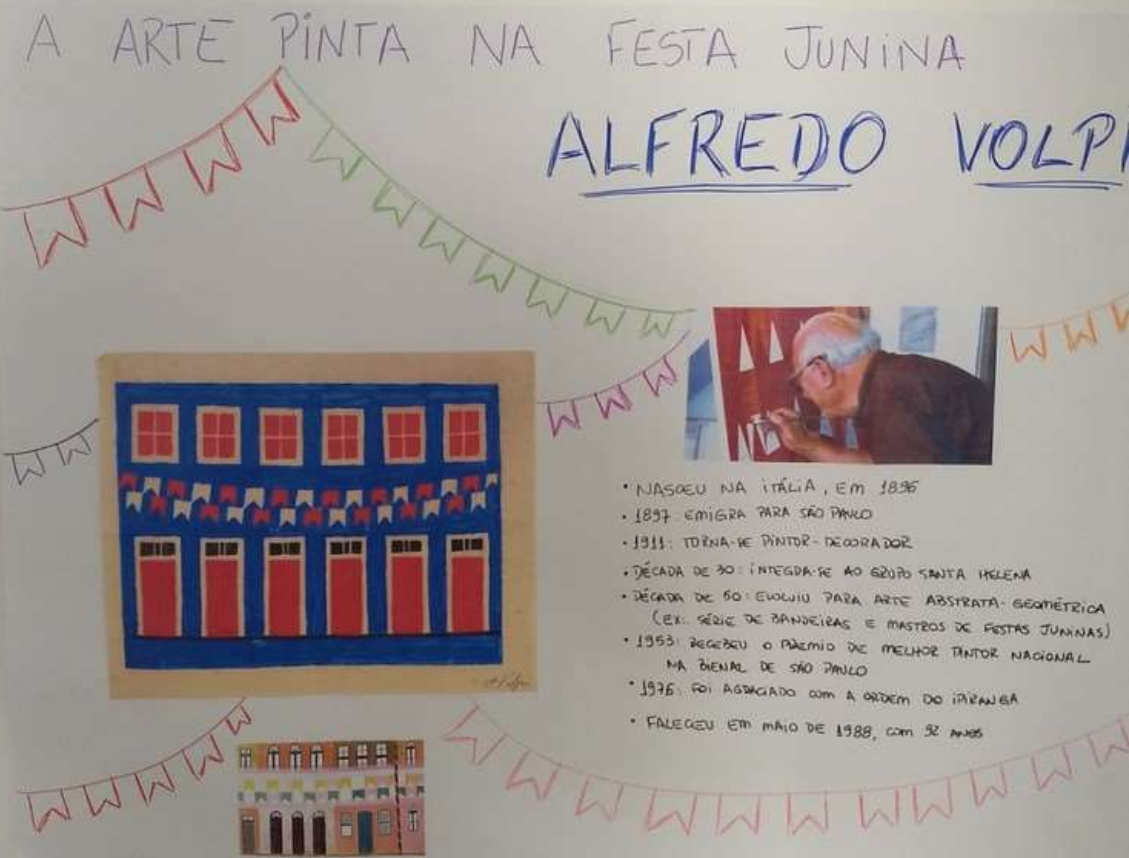 A ARTE PINTA NA FESTA JUNINA
ALFREDO VOLPI
• NASCEU NA ITÁLIA, EM 1896
• 1897: EMIGRA PARA SÃO PAULO
• 1911: TORNA-SE PINTOR-DECORADOR
• DÉCADA DE 30: INTEGRA-SE AO GRUPO SANTA HELENA
• DÉCADA DE 50: EVOLUIU PARA ARTE ABSTRATA-GEOMÉTRICA
(EX: SÉRIE DE BANDEIRAS E MASTROS DE FESTAS JUNINAS)
• 1953: RECEBEU O PRÊMIO DE MELHOR PINTOR NACIONAL
NA BIENAL DE SÃO PAULO
• 1976: FOI AGRACIADO COM A ORDEM DO IPIRANGA
• FALECEU EM MAIO DE 1988, COM 92 ANOS